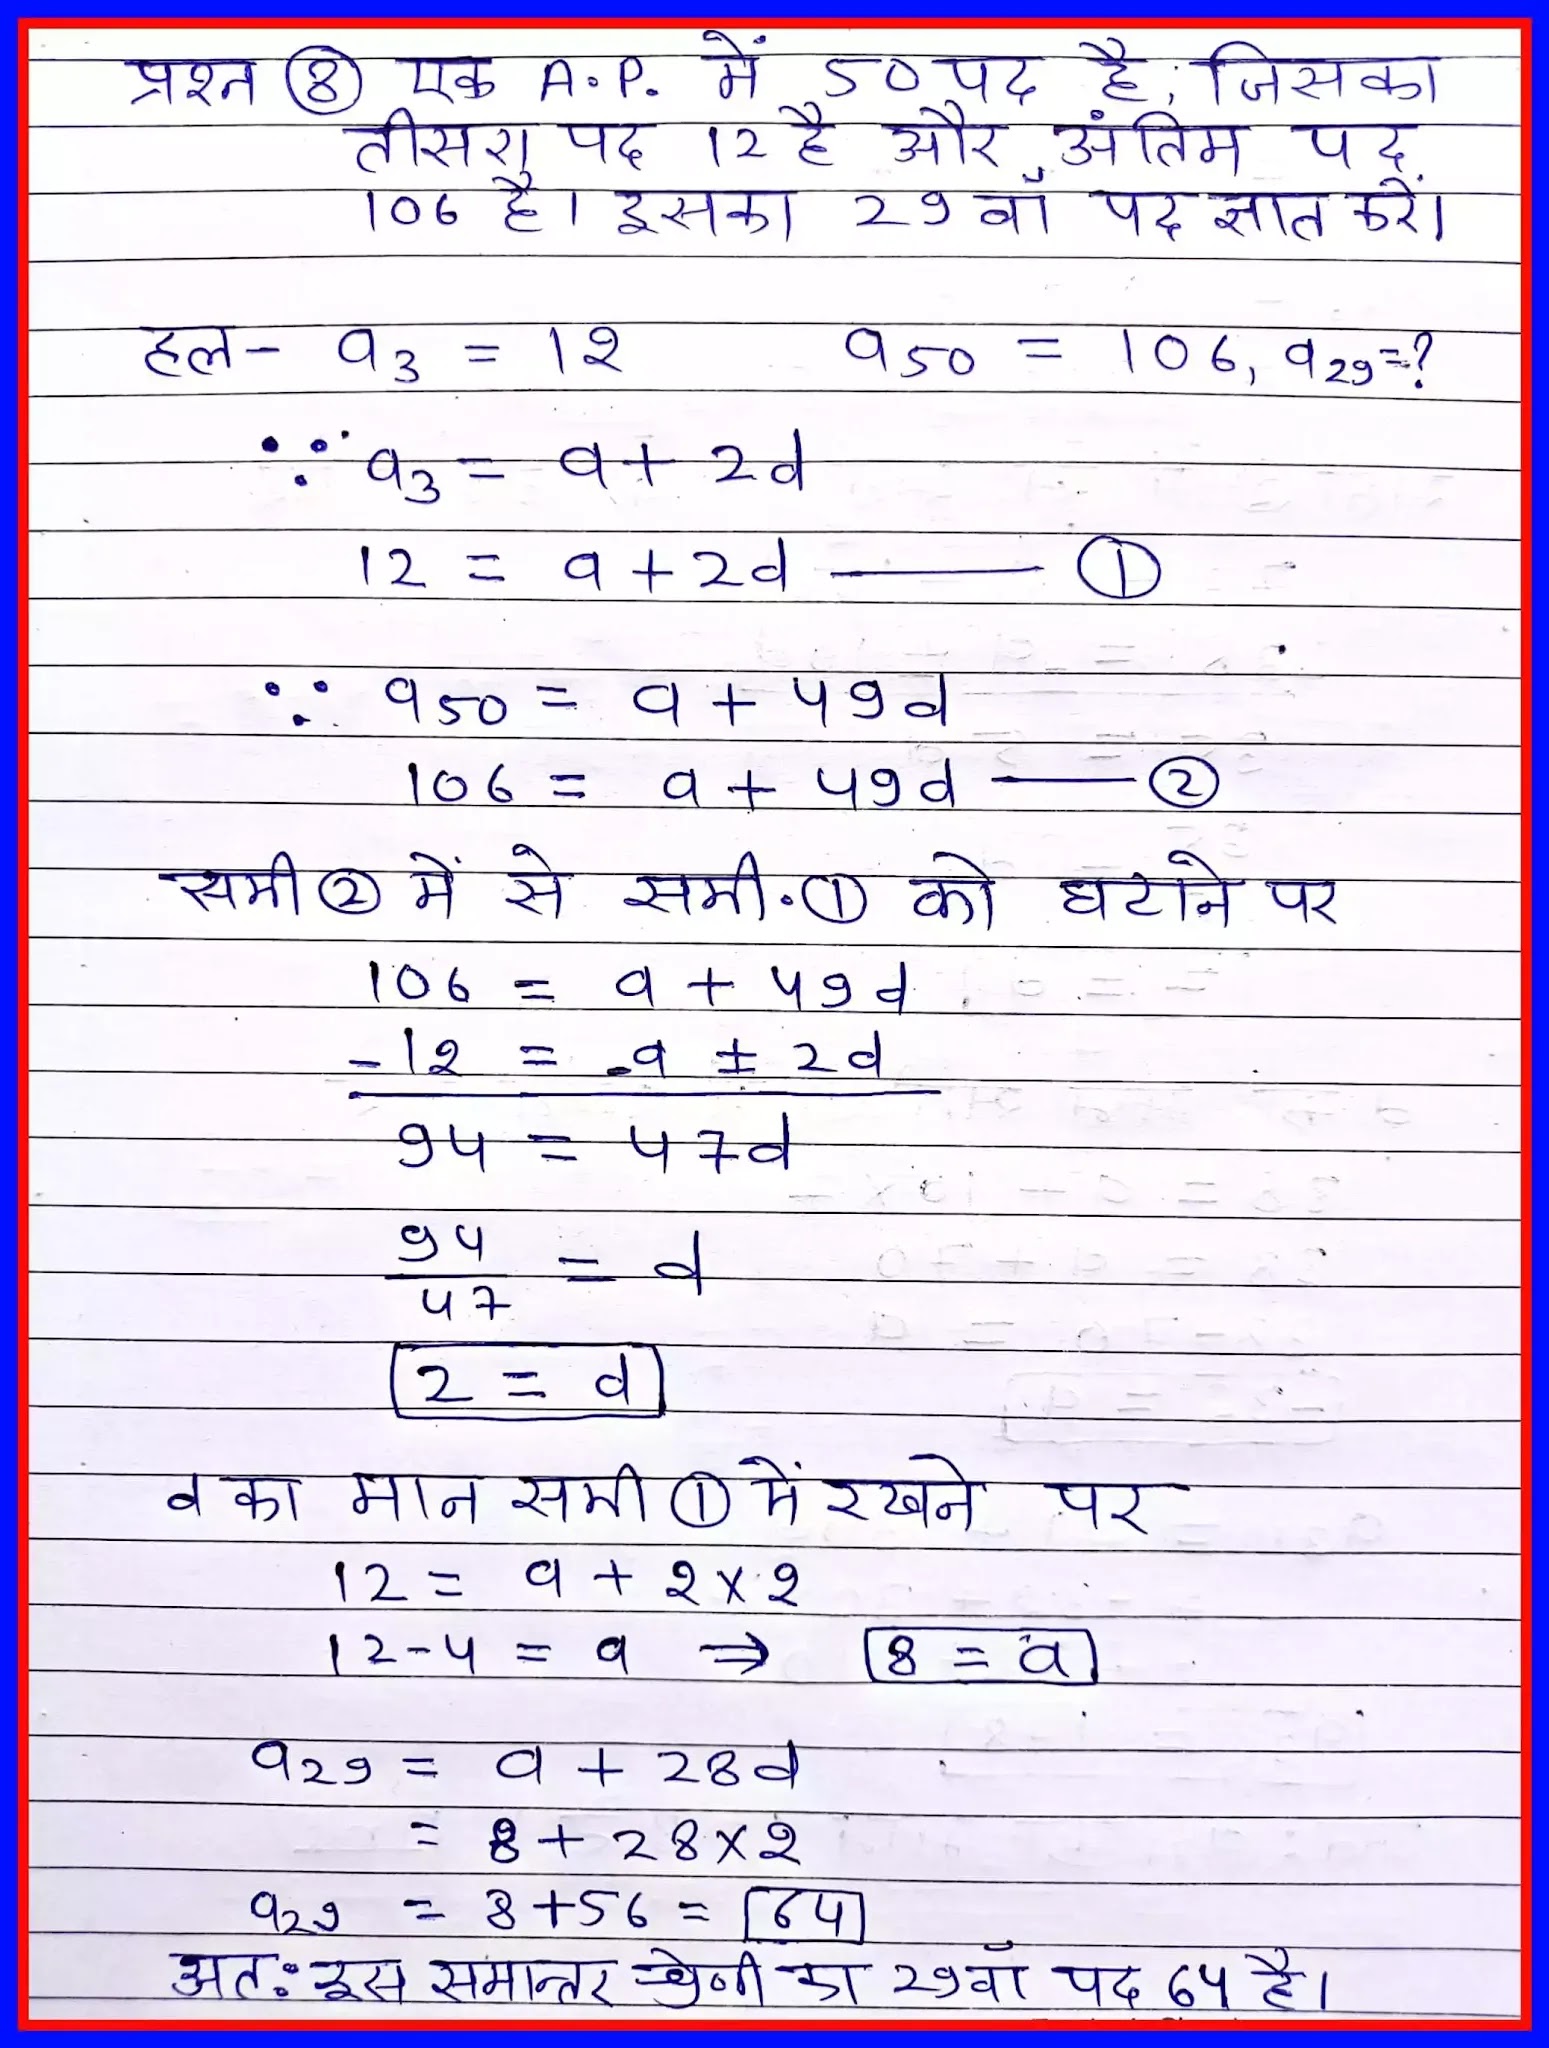 प्रश्न ⑧ एक A.P. में 50 पद है, जिसका
तीसरा पद 12 है और अंतिम पद
106 है। इसका 29 वाँ पद ज्ञात करें।
हल- a₃ = 12 a₅₀ = 106, a₂₉=?
∵ a₃ = a + 2d
12 = a + 2d —— ①
∵ a₅₀ = a + 49d
106 = a + 49d —— ②
समी ② में से समी. ① को घटाने पर
106 = a + 49d
-12 = -a ± 2d
94 = 47d
94/47 = d
2 = d
d का मान समी ① में रखने पर
12 = a + 2×2
12-4 = a ⇒ 8 = a
a₂₉ = a + 28d
= 8 + 28×2
a₂₉ = 8+56 = 64
अतः इस समान्तर श्रेणी का 29वाँ पद 64 है।